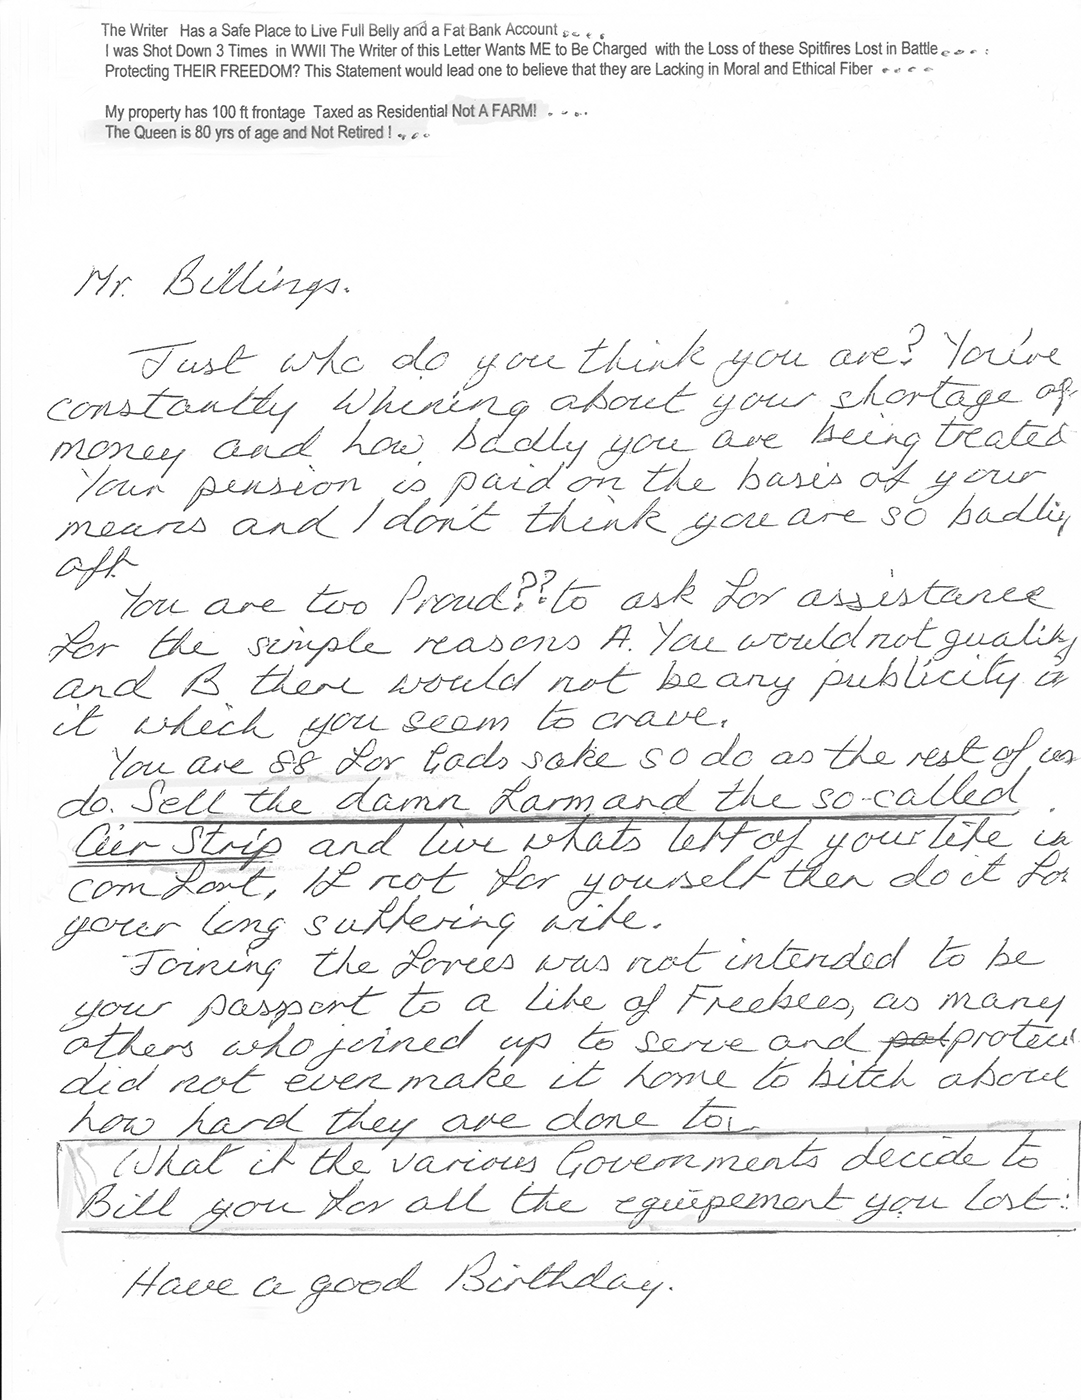 The Writer Has a Safe Place to Live Full Belly and a Fat Bank Account ....
I was Shot Down 3 Times in WWII The Writer of this Letter Wants ME to Be Charged with the Loss of these Spitfires Lost in Battle....
Protecting THEIR FREEDOM? This Statement would lead one to believe that they are Lacking in Moral and Ethical Fiber ....
My property has 100 ft frontage Taxed as Residential Not A FARM! ....
The Queen is 80 yrs of age and Not Retired ! ....
Mr. Billings.
Just who do you think you are? You've
constantly Whining about your shortage of
money and how badly you are being treated
Your pension is paid on the basis of your
means and I don't think you are so badly
off.
You are too Proud?? to ask for assistance
for the simple reasons A. You would not qualify
and B there would not be any publicity in
it which you seem to crave.
You are 88 for Gods sake so do as the rest of us
do. Sell the damn farm and the so-called
Air Strip and live whats left of your life in
comfort, If not for yourself then do it for
your long suffering wife.
Joining the forces was not intended to be
your passport to a life of Freebees, as many
others who joined up to serve and pot protect
did not even make it home to bitch about
how hard they are done to.
What if the various Governments decide to
Bill you for all the equipement you lost.
Have a good Birthday.